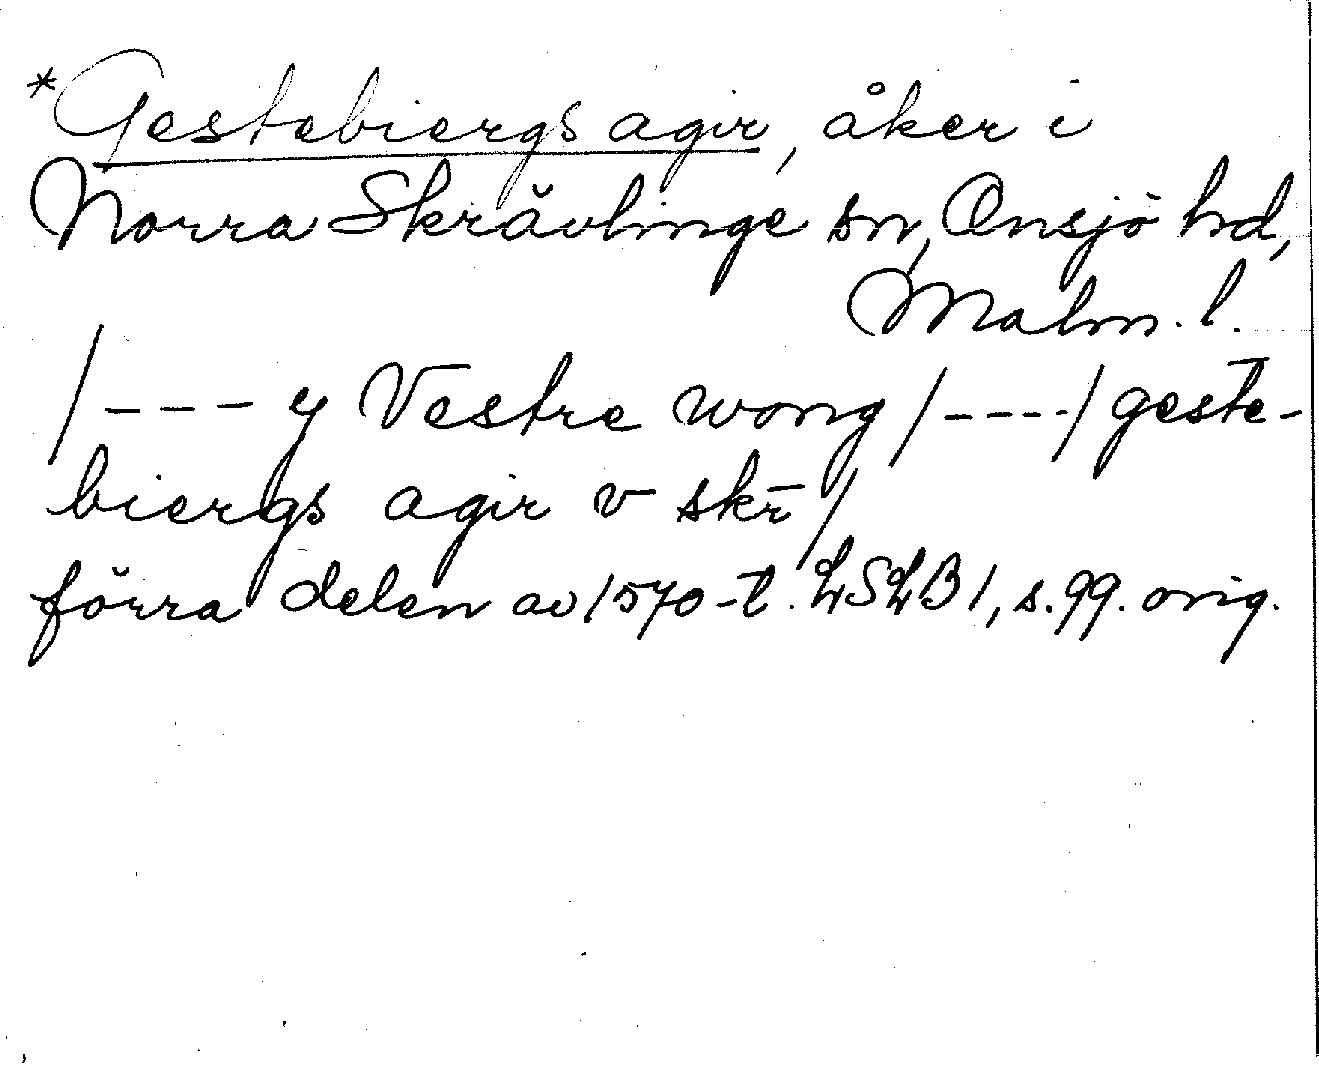 *Gestebiergs agir, åker i
Norra Skrävlinge sn, Onsjö hd,
Malm. l.
/--- y Vestre wong /----/ geste-
biergs agir v skr̄ /
förra delen av 1570-t. LSLB 1, s. 99. orig.